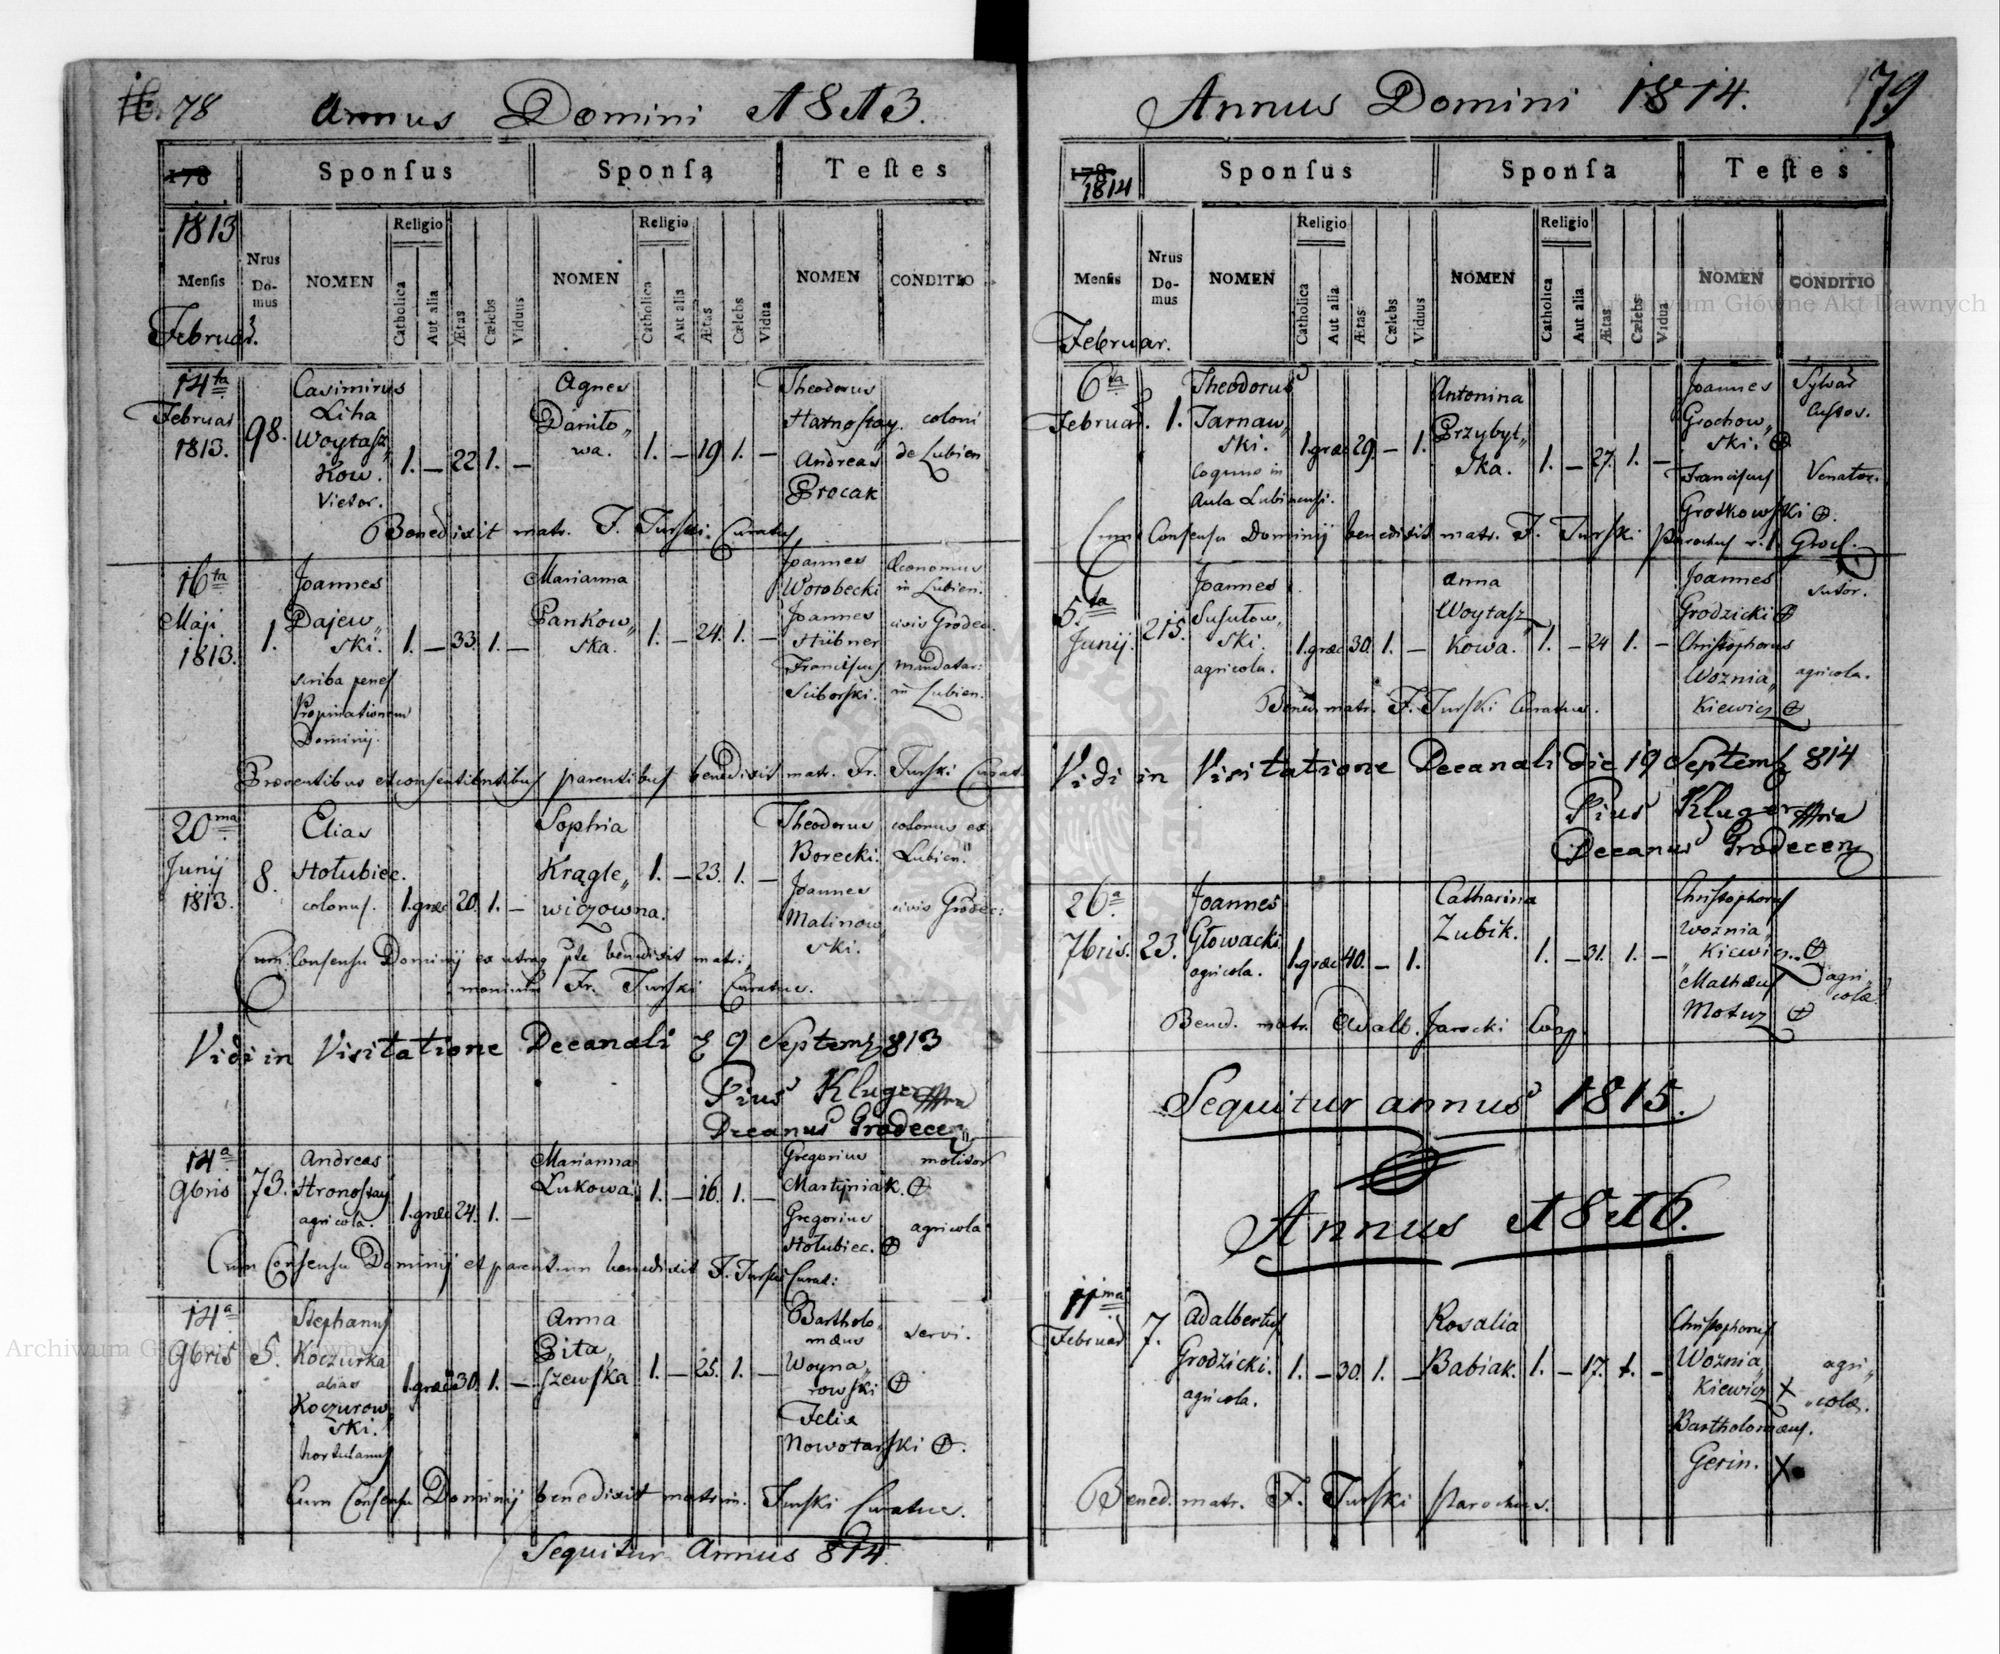 78
Annus Domini 1813.
178
Sponſus
Sponſa
Teſtes
1813
Menſis
Februar.
Nrus Domus
NOMEN
Religio
Catholica
Aut alia
Ætas
Cælebs
Viduus
NOMEN
Religio
Catholica
Aut alia
Ætas
Cælebs
Vidua
NOMEN
CONDITIO
14ta
Februar
1813.
98.
Casimirus
Liha
Woytasz„
Kow.
Vietor.
1. – 22 1. –
Agnes
Daniło„
wa.
1. – 19 1. –
Theodorus
Harnoſtay.
Andreas
Procak
coloni
de Lubien
Benedixit matr. F. Turſki. Curatus
16ta
Maji
1813.
1.
Joannes
Dajew„
ski.
scriba penes
Propinationem
Dominij.
1. – 33. 1. –
Marianna
Pankow„
ska.
1. – 24. 1. –
Joannes
Worobecki
Joannes
Hübner
Franciſcus
Suborſki.
Œconomus
in Lubien.
civis Grodec.
mandatar:
in Lubien.
Præsentibus et conſentientibuſ parentibuſ benedixit matr. Fr. Turſki Curat.
20ma
Junij
1813.
8.
Elias
Hołubiec.
colonuſ.
1. græc 20. 1. –
Sophia
Krągle„
wiczowna.
1. – 23. 1. –
Theodorus
Borecki.
Joannes
Malinow„
ski.
colonus ex
Lubien.
civis Grodec:
Cum Conſenſu Dominij ex utraq pte benedixit matri„
monium Fr. Turſki Curatus.
Vidi in Visitatione Decanali 9 Septemb 813
Pius Kluger
Decanus Grodecen
14a
9bris
73.
Andreas
Hronoſtay
agricola.
1. græc 24. 1. –
Marianna
Lukowa.
1. – 16. 1. –
Gregorius
Martyniak.
Gregorius
Hołubiec.
molitor
agricola
Cum Conſenſu Dominij et parentum benedixit F. Turſki Curat:
14a
9bris
5.
Stephanuſ
Koczurka
alias
Koczurow„
ski.
hortulanuſ
1. græc 30. 1. –
Anna
Pita„
ſzewſka
1. – 25. 1. –
Bartholo„
mæus
Woyna„
rowſki
Felix
Nowotarſki
servi.
Cum Conſenſu Dominij benedixit matrim. Turſki Curatus.
Sequitur Annus 814.
79
Annus Domini 1814.
178
1814
Sponſus
Sponſa
Teſtes
Menſis
Februar.
Nrus Domus
NOMEN
Religio
Catholica
Aut alia
Ætas
Cælebs
Viduus
NOMEN
Religio
Catholica
Aut alia
Ætas
Cælebs
Vidua
NOMEN
CONDITIO
6ta
Februar.
1.
Theodorus
Tarnaw„
ski.
Coquus in
Aula Lubinensi.
1. græc 29. – 1.
Antonina
Przybyl„
ska.
1. – 27. 1. –
Joannes
Grochow„
ski.
Franciſcuſ
Grotkowſki
Sylvar
Custos.
Venator.
Cum Conſenſu Dominij benedixit matr. F. Turſki Parochuſ r. l. Grod.
5ta
Junij.
215.
Joannes
Suſułow„
ski.
agricola.
1. græc 30. 1. –
Anna
Woytasz„
Kowa.
1. – 24 1. –
Joannes
Grodzicki
Chriſtophorus
Woznia„
kiewicz
sutor.
agricola.
Bened. matr. F. Turſki Curatus.
Vidi in Visitatione Decanali die 19 Septemb 814
Pius Kluger
Decanus Grodecen
26a
7bris.
23.
Joannes
Głowacki
agricola.
1. græc 40. – 1.
Catharina
Zubik.
1. – 31. 1. –
Chriſtophoruſ
Woznia„
kiewicz.
Mathæuſ
Motuz
agri„
colæ.
Bened. matr. Adalb. Jarocki Coop.
Sequitur annus 1815.
Annus 1816.
11ma
Februar
7.
Adalbertuſ
Grodzicki.
agricola.
1. – 30. 1. –
Rosalia
Babiak.
1. – 17. 1. –
Chriſtophoruſ
Woznia„
kiewicz
Bartholomæuſ.
Gerin.
agri„
colæ.
Bened. matr. F. Turſki Parochus.
Archiwum Główne Akt Dawnych
Archiwum Główne Akt Dawnych